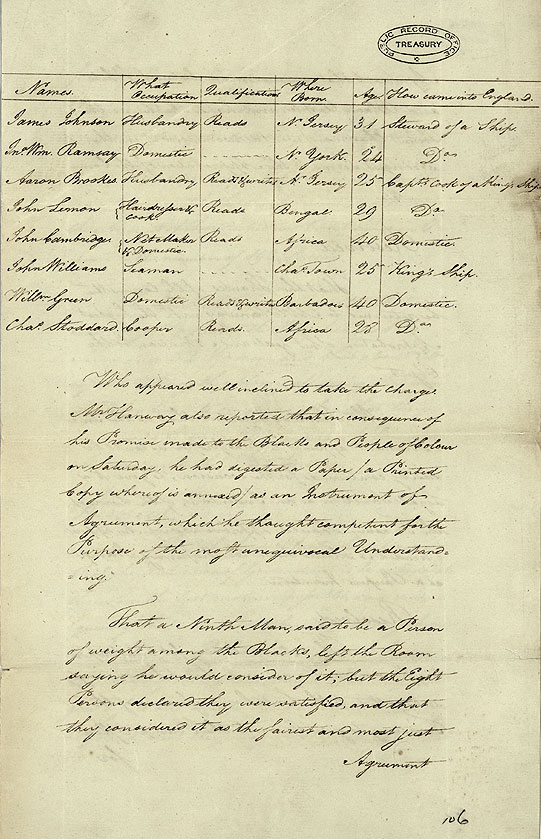 PUBLIC RECORD OFFICE
TREASURY
Names. What Occupation Qualifications Where Born. Age How came into England.
James Johnson Husbandry Reads N. Jersey 31 Steward of a Ship.
Jno. Wm. Ramsay Domestic ...... N. York. 24 Do.
Aaron Brookes Husbandry Reads & writes N. Jersey 25 Capts. cook of a King's Ship
John Lemon Hairdresser & Cook Reads Bengal 29 Do
John Cambridge Net Maker & Domestic. Reads Africa 40 Domestic.
John Williams Seaman ..... Chas. Town 25 King's Ship.
Willm Green Domestic Reads & writes Barbadoes 40 Domestic.
Chas. Stoddard Cooper Reads. Africa 28 Do.
Who appeared well inclined to take the Charge.
Mr. Hanway also reported that in consequence of
his Promise made to the Blacks and People of Colour
on Saturday, he had digested a Paper / a Printed
Copy whereof is annexed / as an Instrument of
Agreement, which he thought competent for the
Purpose of the most unequivocal Understand=
=ing.
That a Ninth Man, said to be a Person
of weight among the Blacks, left the Room
saying he would consider of it; but the Eight
Persons declared they were satisfied, and that
they considered it as the fairest and most just
Agreement
106